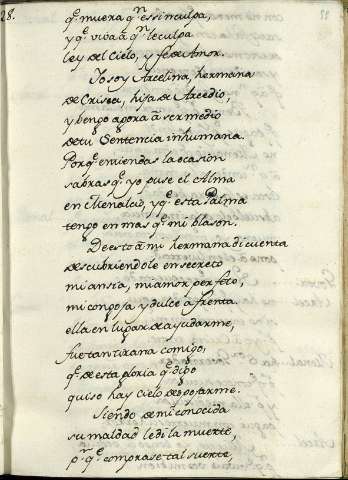 28.
q.^e muera q.^n es sin culpa,
y q.^e viva a q.^n le culpa
ley del Cielo, y fe de Amor.
Yo soy Arcelina, hermana
de Crisea, hija de Arcedio,
y bengo agora a ser medio
de tu Sentencia inhumana.
Porq.^e entiendas la ocasion
sabras q.^e yo puse el Alma
en Menalcio, y q.^e esta Palma
tengo en mas q.^e mi blason.
De esto a mi hermana di cuenta
descubriendole en secreto
mi ansia, mi amor perfeto,
mi congoja y dulce afrenta
ella en lugar de ayudarme,
fue tan tirana comigo,
q.^e de esta gloria q.^e digo
quiso hay Cielo despojarme.
Siendo de mi conocida
su maldad le di la muerte,
p.^r q.^e comprase tal suerte,